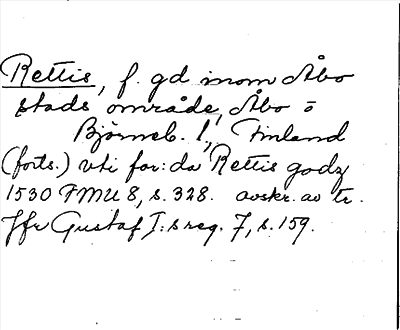 Rettis, f. gd inom Åbo
stads område, Åbo o
Björneb. l, Finland
(forts.) vti for:da Rettis godz
1530 FMU 8, s. 328. avskr. av tr.
Jfr Gustaf I:s reg. 7, s. 159.